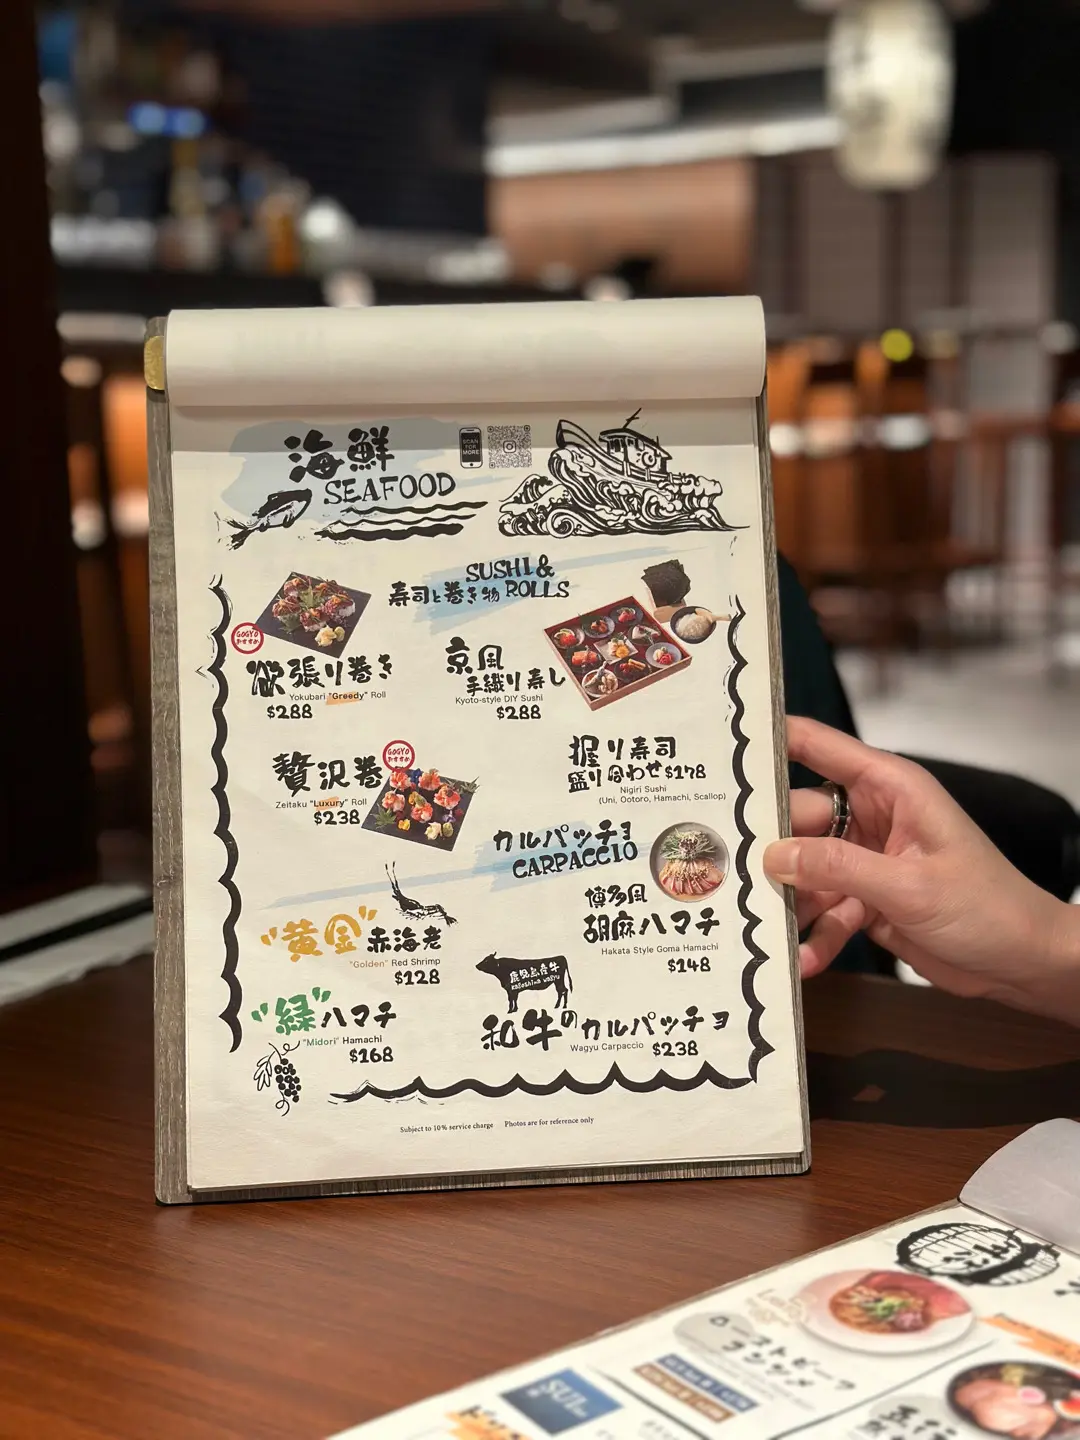 海鮮
SEAFOOD
SCAN
FOR
MORE
SUSHI &
寿司と巻き物 ROLLS
GOGYO
おすすめ
欲張り巻き
Yokubari "Greedy" Roll
$288
京風
手織り寿し
Kyoto-style DIY Sushi
$288
GOGYO
おすすめ
贅沢巻
Zeitaku "Luxury" Roll
$238
握り寿司
盛り合わせ $178
Nigiri Sushi
(Uni, Ootoro, Hamachi, Scallop)
カルパッチョ
CARPACCIO
"黄金"赤海老
"Golden" Red Shrimp
$128
博多風
胡麻ハマチ
Hakata Style Goma Hamachi
$148
"緑"ハマチ
"Midori" Hamachi
$168
鹿児島産牛
Kagoshima Wagyu
和牛のカルパッチョ
Wagyu Carpaccio $238
Subject to 10% service charge Photos are for reference only
ローストビーフ